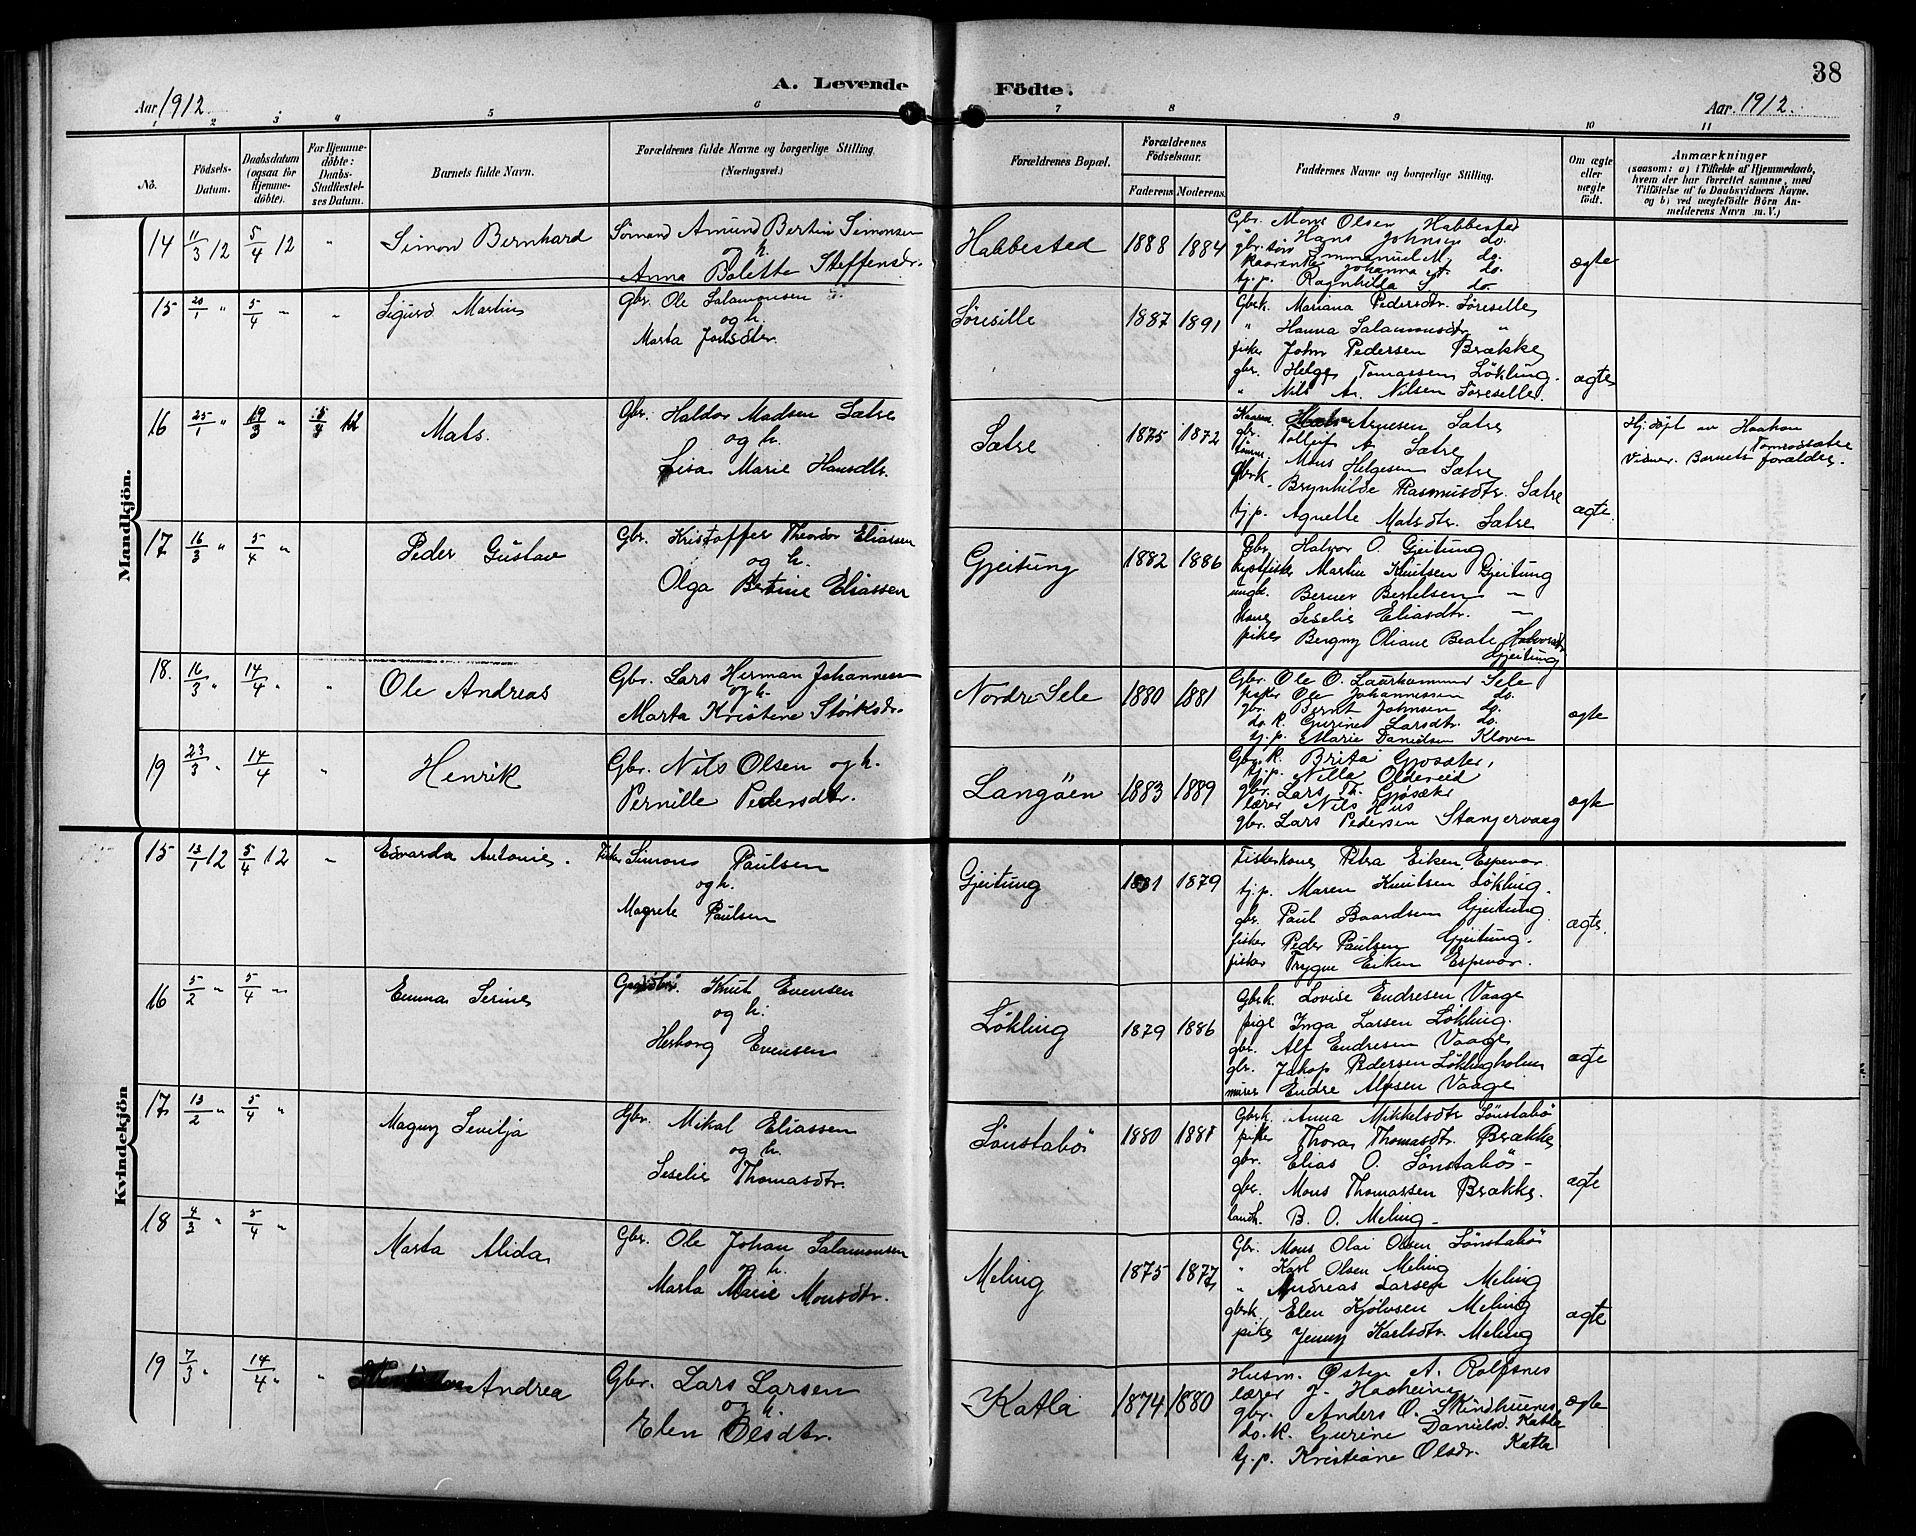 38
A. Levende Födte.
Aar 1912.
Aar 1912.
1 2 3 4 5 6 7 8 9 10 11
No.
Födsels-Datum.
Daabsdatum (ogsaa for Hjemme-döbte).
For Hjemme-döbte: Daabs-Stadfæstel-ses Datum.
Barnets fulde Navn.
Forældrenes fulde Navne og borgerlige Stilling (Næringsvei.)
Forældrenes Bopæl.
Forældrenes Födselsaar.
Faderens Moderens.
Faddernes Navne og borgerlige Stilling.
Om ægte eller uægte födt.
Anmærkninger
(saasom: a) i Tilfælde af Hjemmedaab, hvem der har forrettet samme, med Tilföielse af to Daabsvidners Navne. og b) ved uægtefödte Börn An-melderens Navn m. V.)
Mandkjön.
14 11/3 12 5/4 12 " Simon Bernhard
Sömand Amund Bertin Simonsen
og h.
Anna Bolette Steffensdr.
Habbested 1888 1884
Gbr. Mons Olsen Habbested
Hans Johnsen do.
gbr. søn Emmanuel M. do.
Johanna do.
tj.p. Ragnhilda S do.
ægte
15 20/1 " 5/4 " " Sigurd Martin
Gbr. Ole Salamonsen
og h.
Marta Jonsdtr.
Søresille 1887 1891
Gbrk. Mariana Pedersdtr. Søreselle
" Hanna Salamonsdtr "
fisker John Pedersen Brække
gbr. Helge Tomassen Løkling.
" Nils A. Nilsen Søreselle.
ægte
16 25/1 " 19/3 " 5/4 12 Mats.
Gbr. Haldor Madsen Sætre
og h.
Lisa Marie Hansdtr.
Sætre 1875 1872
Arnesen Sætre
gbr. Tollejf A Sætre
Mons Helgesen Sætre
Gbrk. Brynhilde Rasmusdtr. Sætre
tj.p. Agnette Matsdtr. Sætre
ægte.
Hj. døpt av Haakon
Tomrodsætre
Vidner. Barnets forældre.
17 16/3 " 5/4 " Peder Gustav
Gbr. Kristoffer Theodor Eliassen
og h.
Olga Bertine Eliassen
Gjeitung 1882 1886
Gbr. Halvor O. Gjeitung
kystfisker Martin Knutsen Gjeitung
ungk. Berner Bertelsen "
kone Seselie Eliasdtr. "
pike Bergny Oliane Beate Halvorsdtr
Gjeitung
18. 16/3 " 14/4 " " Ole Andreas
Gbr. Lars Herman Johannesen
og h.
Marta Kristene Størksdr.
Nordre Sele 1880 1881
Gbr. Ole O. Laurhammer Sele
fisker Ole Johannessen do.
gbr. Bernt Johnsen do.
do. k. Gurine Larsdtr. do.
tj.p. Marie Danielsen Kloven
ægte
19 23/3 " 14/4 " Henrik
Gbr. Nils Olsen og h.
Pernille Pedersdtr.
Langöen 1883 1889
Gbr. k. Brita Gjosæter,
tj.p. Nille Oldereid
gbr. Lars Th. Gjøsæter
lærer Nils Hus
gbr. Lars Pedersen Stangervaag
ægte
Kvindekjön
15 13/1 12 5/4 12 " Edvarda Antonie.
Fisker Simon Paulsen
og h.
Magrete Paulsen
Gjeitung 1881 1879
Fiskerkone Petra Eiken, Espevær.
tj.p. Maren Knutsen Løkling.
gbr. Paul Baardsen Gjeitung.
fisker Peder Paulsen Gjeitung.
fisker Trygve Eiken Espevær.
ægte.
16 5/2 " 5/4 " Emma Serine
Knut Evensen
og h.
Herborg Evensen
Lökling 1879 1886
Gbrk. Lovise Endresen Vaage
pige Inga Larsen Løkling.
gbr. Alf Endresen Vaage
gbr. Jakop Pedersen Løklingholm
murer Endre Alfsen Vaage
ægte
17 13/2 " 5/4 " Magny Sevilja
Gbr. Mikal Eliassen
og h.
Seselie Thomasdtr.
Sönstabö 1880 1881
Gbrk. Anna Mikkelsdtr Sönstabö
pike Thora Thomasdtr. Brække
gbr. Elias O. Sønstabö-
gbr. Mons Thomassen Brække.
landh. B. O. Meling-
ægte
18 4/3 " 5/4 " Marta Alida
Gbr. Ole Johan Salamonsen
og h.
Marta Marie Monsdtr.
Meling 1875 1877
Gbr. Mons Olai Olsen Sønstabö
" Karl Olsen Meling
" Andreas Larsen Meling
gbrk Elen Kjølvsen Meling
pike Jenny Karlsdtr. Meling
ægte
19 7/3 " 14/4 " " Andrea
Gbr. Lars Larsen
og h.
Elen Olsdtr.
Katla 1874 1880
Husm. Østen A. Rolfsnes
lærer J. Hachein
gbr. Anders O. Skindhuenes
do. k. Gurine Danielsd. Katla
tj.p. Kristiane Olsdr. Katla
ægte